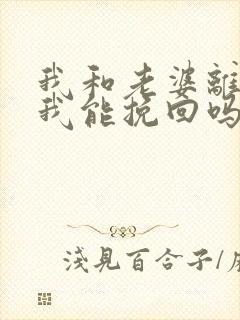 我和老婆離
我能挽回吗
浅見百合子/